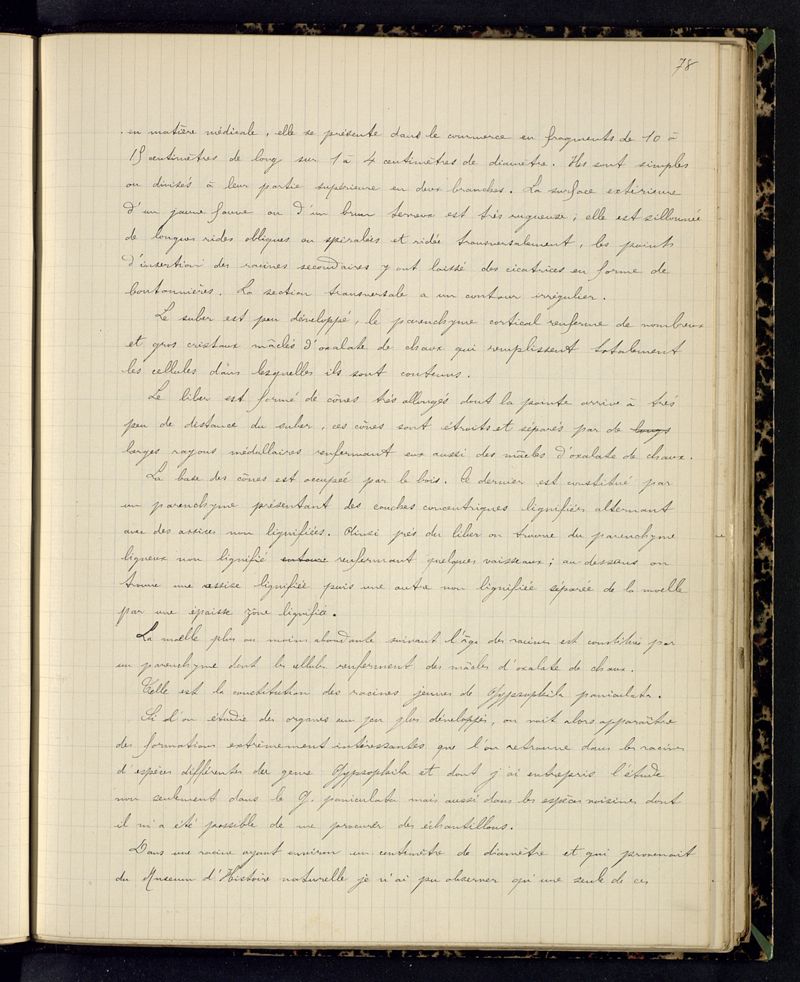 78
en matière médicale, elle se présente dans le commerce en fragments de 10 à
15 centimètres de long sur 1 à 4 centimètres de diamètre. Ils sont simples
ou divisés à leur partie supérieure en deux branches. La surface extérieure
d'un jaune fauve ou d'un brun terreux est très rugueuse ; elle est sillonnée
de longues rides obliques ou spiralées et ridée transversalement, les points
d'insertion des racines secondaires y ont laissé des cicatrices en forme de
boutonnières. La section transversale a un contour irrégulier.
Le suber est peu développé, le parenchyme cortical renferme de nombreux
et gros cristaux mâclés d'oxalate de chaux qui remplissent totalement
les cellules dans lesquelles ils sont contenus.
Le liber est formé de cônes très allongés dont la pointe arrive à très
peu de distance du suber, ces cônes sont étroits et séparés par de longs
larges rayons médullaires renfermant eux aussi des mâcles d'oxalate de chaux.
La base des cônes est occupée par le bois. Ce dernier est constitué par
un parenchyme présentant des couches concentriques lignifiées alternant
avec des assises non lignifiées. Ainsi près du liber on trouve du parenchyme
ligneux non lignifié entouré renfermant quelques vaisseaux ; au dessous on
trouve une assise lignifiée puis une autre non lignifiée séparée de la moelle
par une épaisse zône lignifiée.
La moëlle plus ou moins abondante suivant l'âge des racines est constituée par
un parenchyme dont les cellules renferment des mâcles d'oxalate de chaux.
Telle est la constitution des racines jeunes de Gypsophila paniculata.
Si l'on étudie des organes un peu plus développés, on voit alors apparaître
des formations extrêmement intéressantes que l'on retrouve dans les racines
d'espèces différentes du genre Gypsophila et dont j'ai entrepris l'étude
non seulement dans le G. paniculata mais aussi dans les espèces voisines dont
il m'a été possible de me procurer des échantillons.
Dans une racine ayant environ un centimètre de diamètre et qui provenait
du Museum d'Histoire naturelle je n'ai pu observer qu'une seule de ces